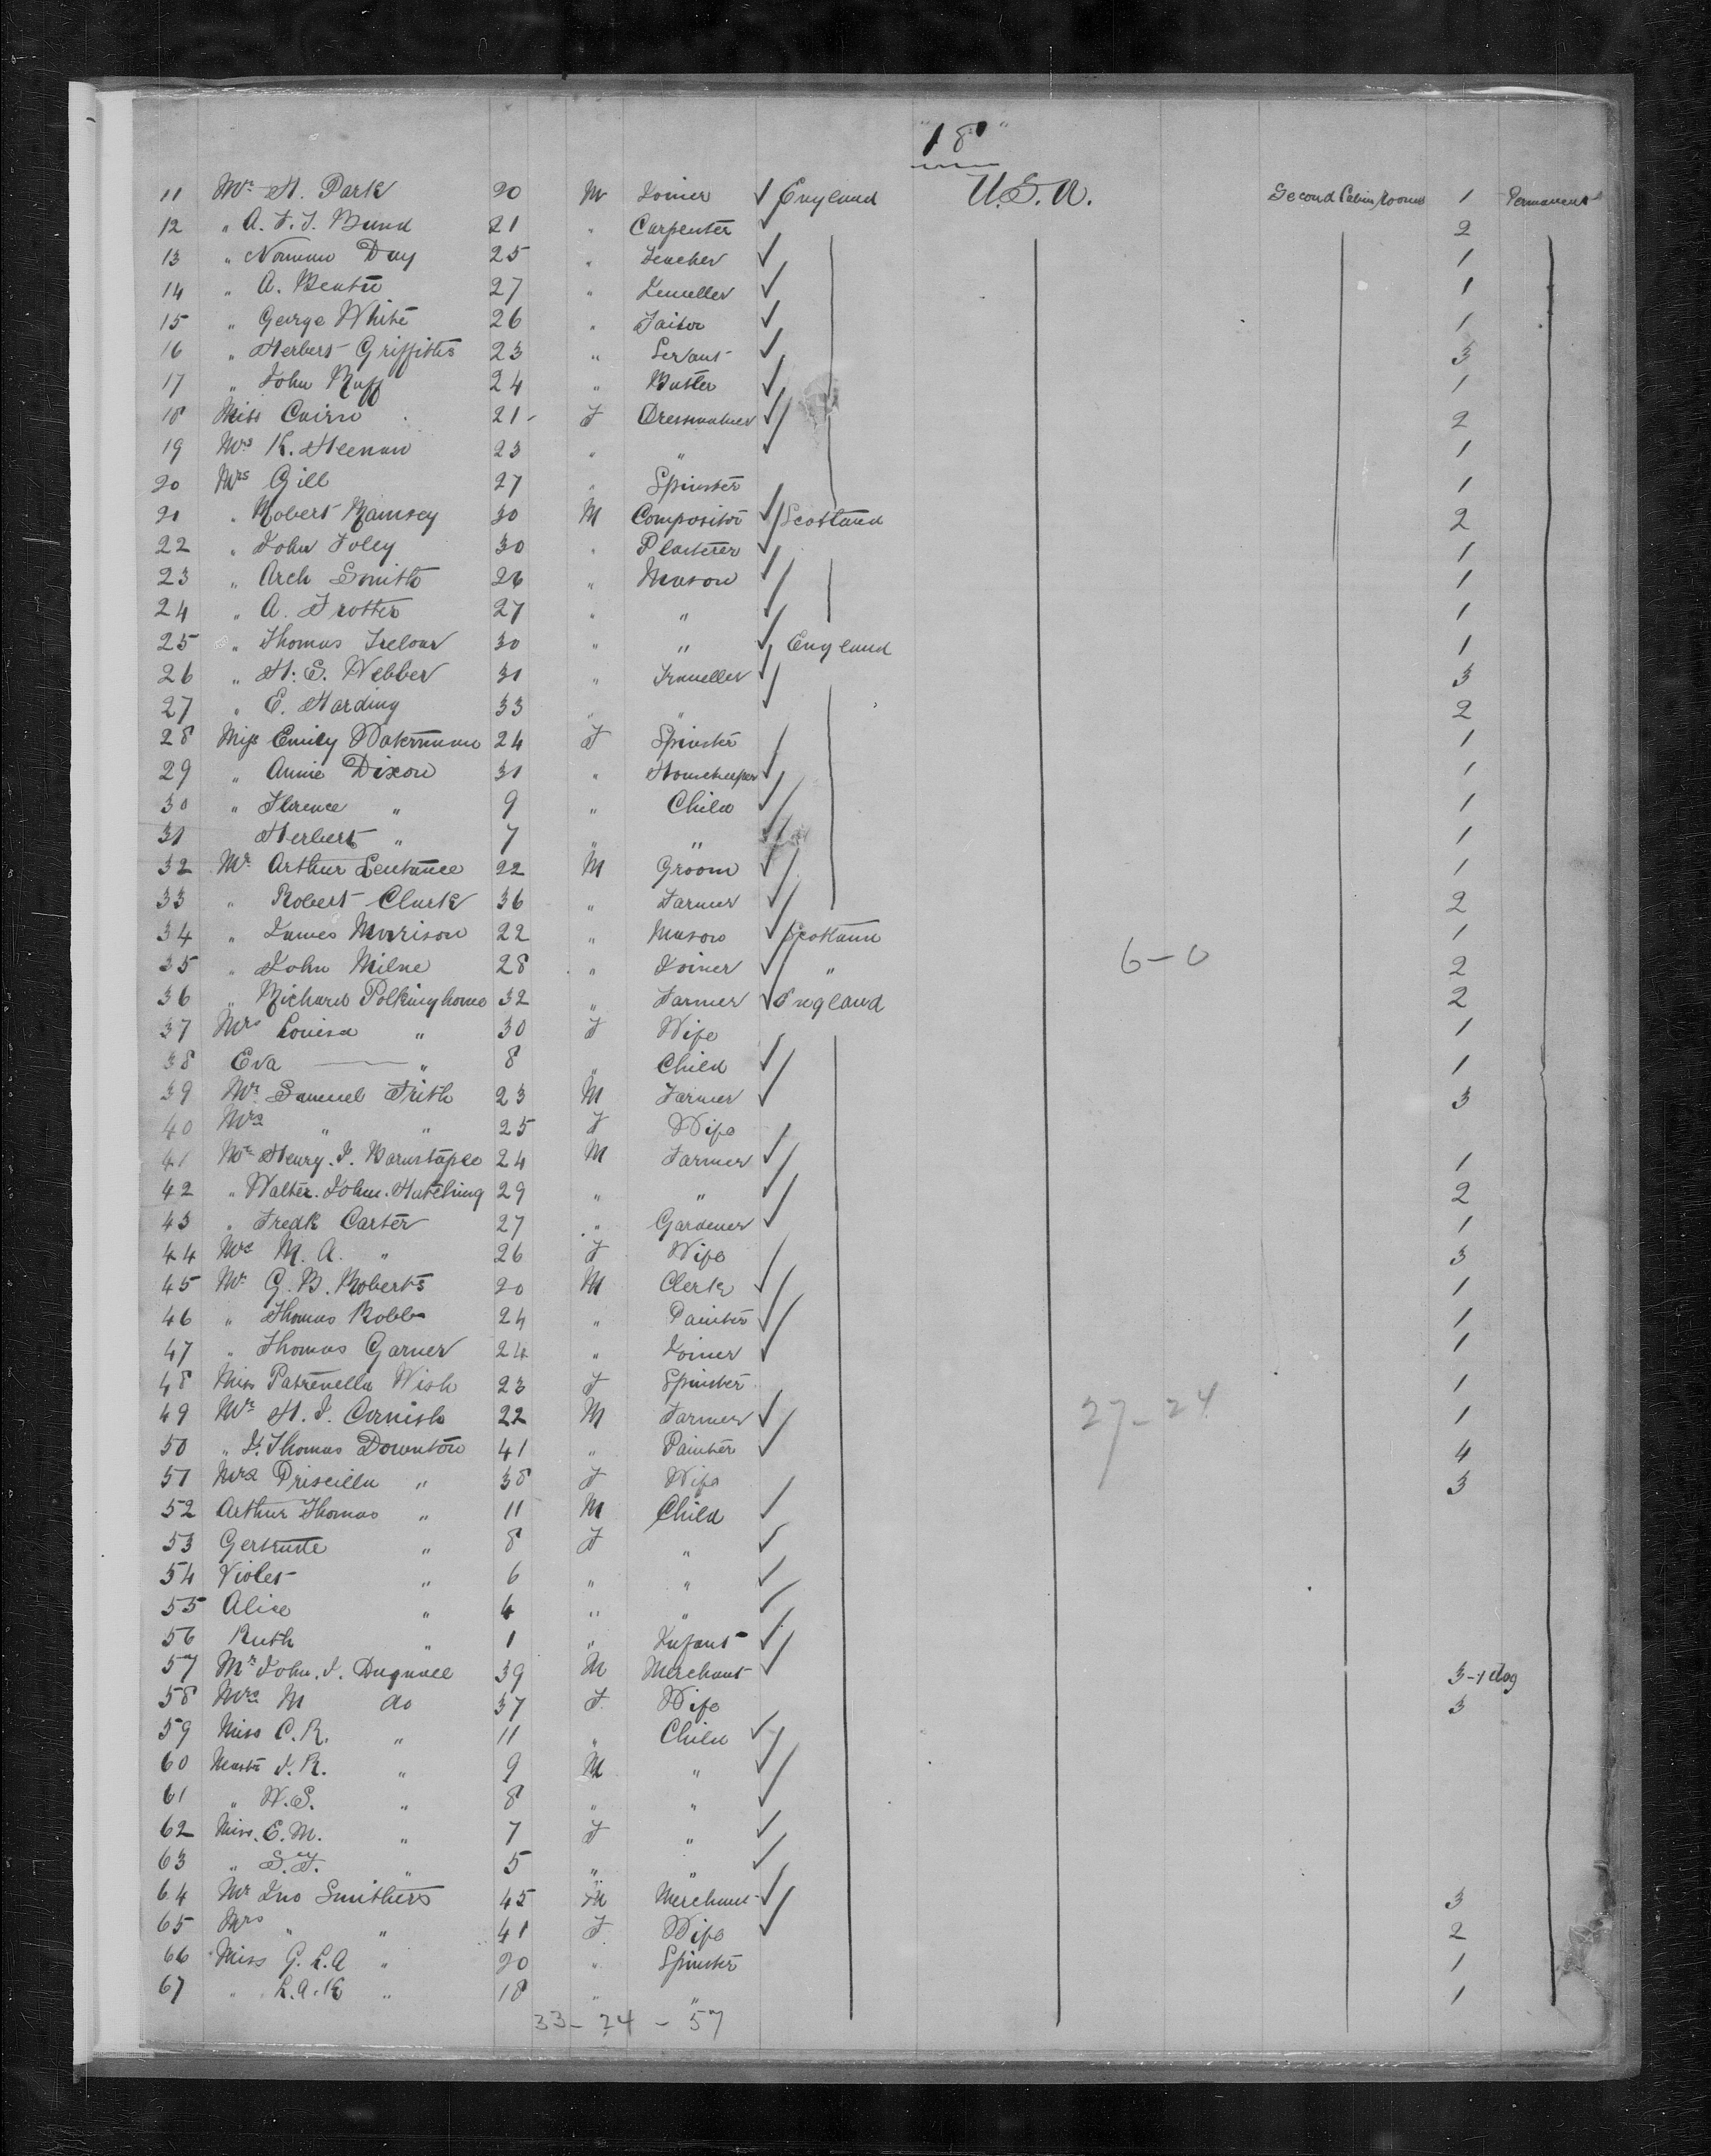 "18"
11 Mr H. Park 20 M Joiner ✓ England U.S.A. Second Cabin Rooms 1 Permanent
12 " A. F. J. Bund 21 " Carpenter ✓ 2
13 " Norman Day 25 " Teacher ✓ 1
14 " A. 27 " Jeweller ✓ 1
15 " George White 26 " Tailor ✓ 1
16 " Herbert Griffiths 23 " Servant ✓ 3
17 " John Ruff 24 " Butler ✓ 1
18 Miss Cairn 21 F Dressmaker ✓ 2
19 Mrs K. Heenan 23 " " 1
20 Mrs Gill 27 " Spinster 1
21 " Robert Ramsey 30 M Compositor ✓ Scotland 2
22 " John Foley 30 " Plasterer ✓ 1
23 " Arch Smith 26 " Mason ✓ 1
24 " A. Trotter 27 " " ✓ 1
25 " Thomas 30 " " ✓ England 1
26 " H. S. Webber 31 " Traveller ✓ 3
27 " E. Harding 33 " " ✓ 2
28 Miss Emily Waterman 24 F Spinster 1
29 " Annie Dixon 31 " Housekeeper ✓ 1
30 " Florence " 9 " Child ✓ 1
31 Herbert " 7 " " 1
32 Mr Arthur Sentance 22 M Groom ✓ 1
33 " Robert Clark 36 " Farmer ✓ 2
34 " James Morrison 22 " Mason ✓ Scotland 1
35 " John Milne 28 " Joiner ✓ " 6-0 2
36 " Richard Polkinghome 32 " Farmer ✓ England 2
37 Mrs Louisa " 30 F Wife 1
38 Eva " 8 " Child ✓ 1
39 Mr Samuel Frith 23 M Farmer ✓ 3
40 Mrs " " 25 F Wife
41 Mr Henry. J. Barnstaple 24 M Farmer ✓ 1
42 " Walter. John. Hutching 29 " " ✓ 2
43 " Fredk Carter 27 " Gardener ✓ 1
44 Mrs M. A. " 26 F Wife 3
45 Mr G. B. Roberts 20 M Clerk ✓ 1
46 " Thomas Robb 24 " Painter ✓ 1
47 " Thomas Garner 24 " Joiner ✓ 1
48 Miss Patrenella Wish 23 F Spinster 1
49 Mr H. J. Cornish 22 M Farmer ✓ 27-24 1
50 " J. Thomas Downton 41 " Painter ✓ 4
51 Mrs Priscilla " 38 F Wife 3
52 Arthur Thomas " 11 M Child ✓
53 Gertrude " 8 F " ✓
54 Violet " 6 " " ✓
55 Alice " 4 " " ✓
56 Ruth " 1 " Infant ✓
57 Mr John. J. 39 M Merchant ✓ 3-1 dog
58 Mrs M do 37 F Wife 3
59 Miss C. R. " 11 " Child ✓
60 Mastr J. R. " 9 M " ✓
61 " W. S. " 8 " " ✓
62 Miss. E. M. " 7 F " ✓
63 " S. F. " 5 " " ✓
64 Mr Jno Smithers 45 M Merchant ✓ 3
65 Mrs " " 41 F Wife ✓ 2
66 Miss G. L. A " 20 " Spinster 1
67 " L. A. K " 18 " " 1
33-24-57